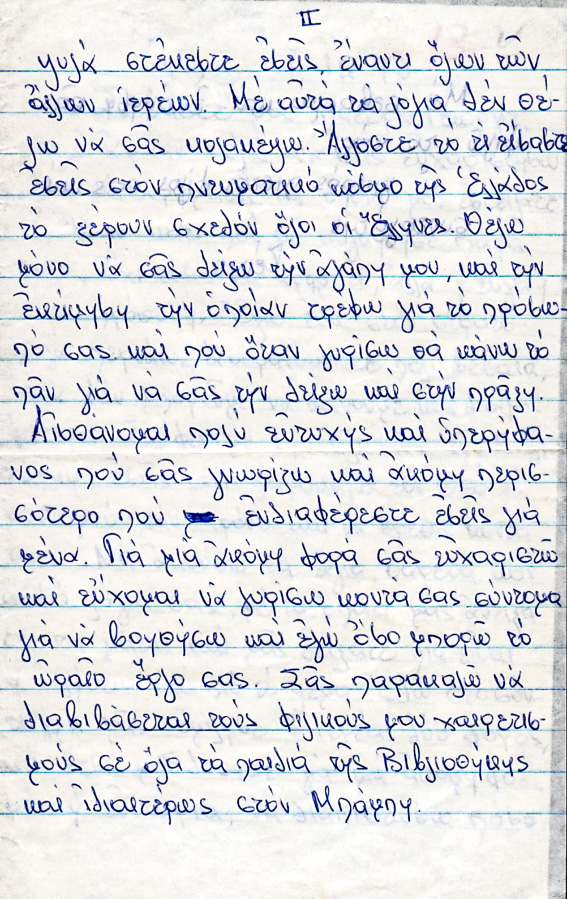 II
ψηλά στέκεστε ἐσεῖς, ἔναντι ὅλων τῶν
ἄλλων ἱερέων. Μέ αὐτά τα λόγιά δέν θέ-
λω νὰ σᾶς κολακέψω. Ἄλλοστε τὸ τί εἶσαστε
ἐσεῖς στὸν πνευματικό κόσμο τῆς Ἑλλάδος
τὸ ξέρουν σχεδόν ὅλοι οἱ Ἕλληνες. Θέλω
μόνο νὰ σᾶς δείξω τὴν ἀγάπη μου, καὶ τὴν
ἐκτίμηση τὴν ὁποίαν τρέφω γιά τὸ πρόσω-
πό σας καί πού ὅταν γυρίσω θα κάνω τὸ
πᾶν γιά νὰ σᾶς τὴν δείξω καί στὴν πρᾶξη.
Αἰσθάνομαι πολύ εὐτυχής καί ὑπερήφα-
νος πού σᾶς γνωρίζω καί ἀκόμη περισ-
σότερο πού ἐνδιαφέρεστε ἐσεῖς γιά
μένα. Γιά μιά ἀκόμη φορά σᾶς εὐχαριστῶ
καί εὔχομαι νὰ γυρίσω κοντά σας σύντομα
γιά νὰ βοηθήσω καί ἐγώ ὅσο μπορῶ τὸ
ὡραῖο ἔργο σας. Σᾶς παρακαλῶ νὰ
διαβιβάσεται τούς φιλικούς μου χαιρετισ-
μούς σέ ὅλα τὰ παιδιά τῆς Βιβλιοθήκης
καί ἰδιαιτέρως στὸν Μπάμπη.